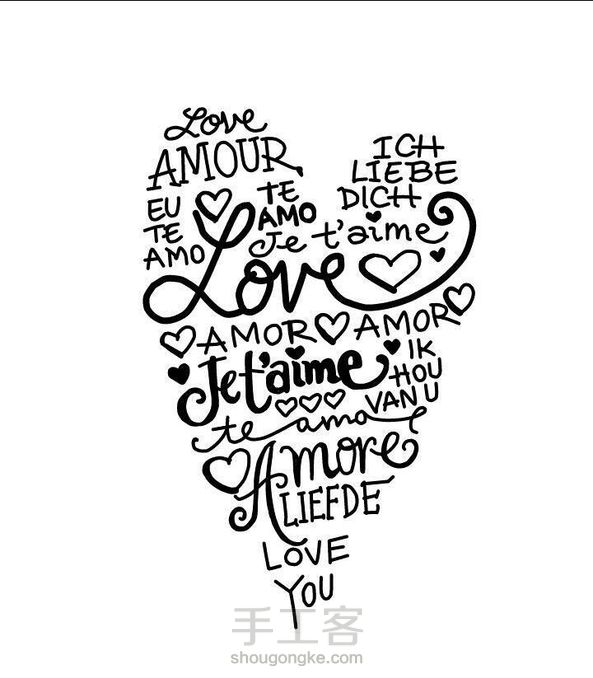 Love
AMOUR
ICH
LIEBE
DICH
EU
TE
AMO
TE
AMO
Je t'aime
Love
AMOR AMOR
Je t'aime
IK
HOU
VAN U
te amo
Amore
LIEFDE
LOVE
YOU
手工客
shougongke.com